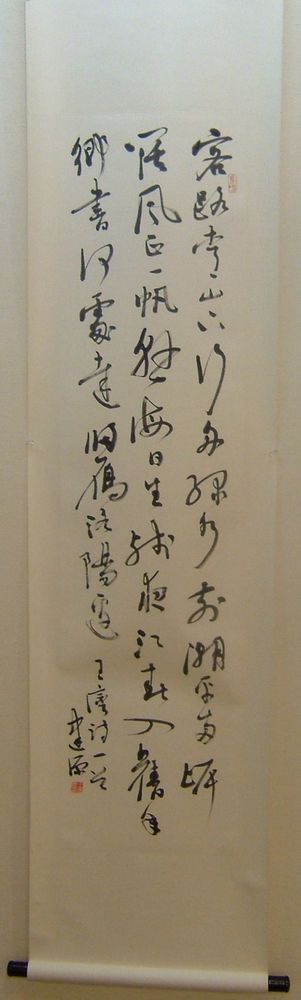 客路青山下行舟綠水前潮平兩岸
闊風正一帆懸海日生殘夜江春入舊年
鄉書何處達歸雁洛陽邊
王灣詩一首